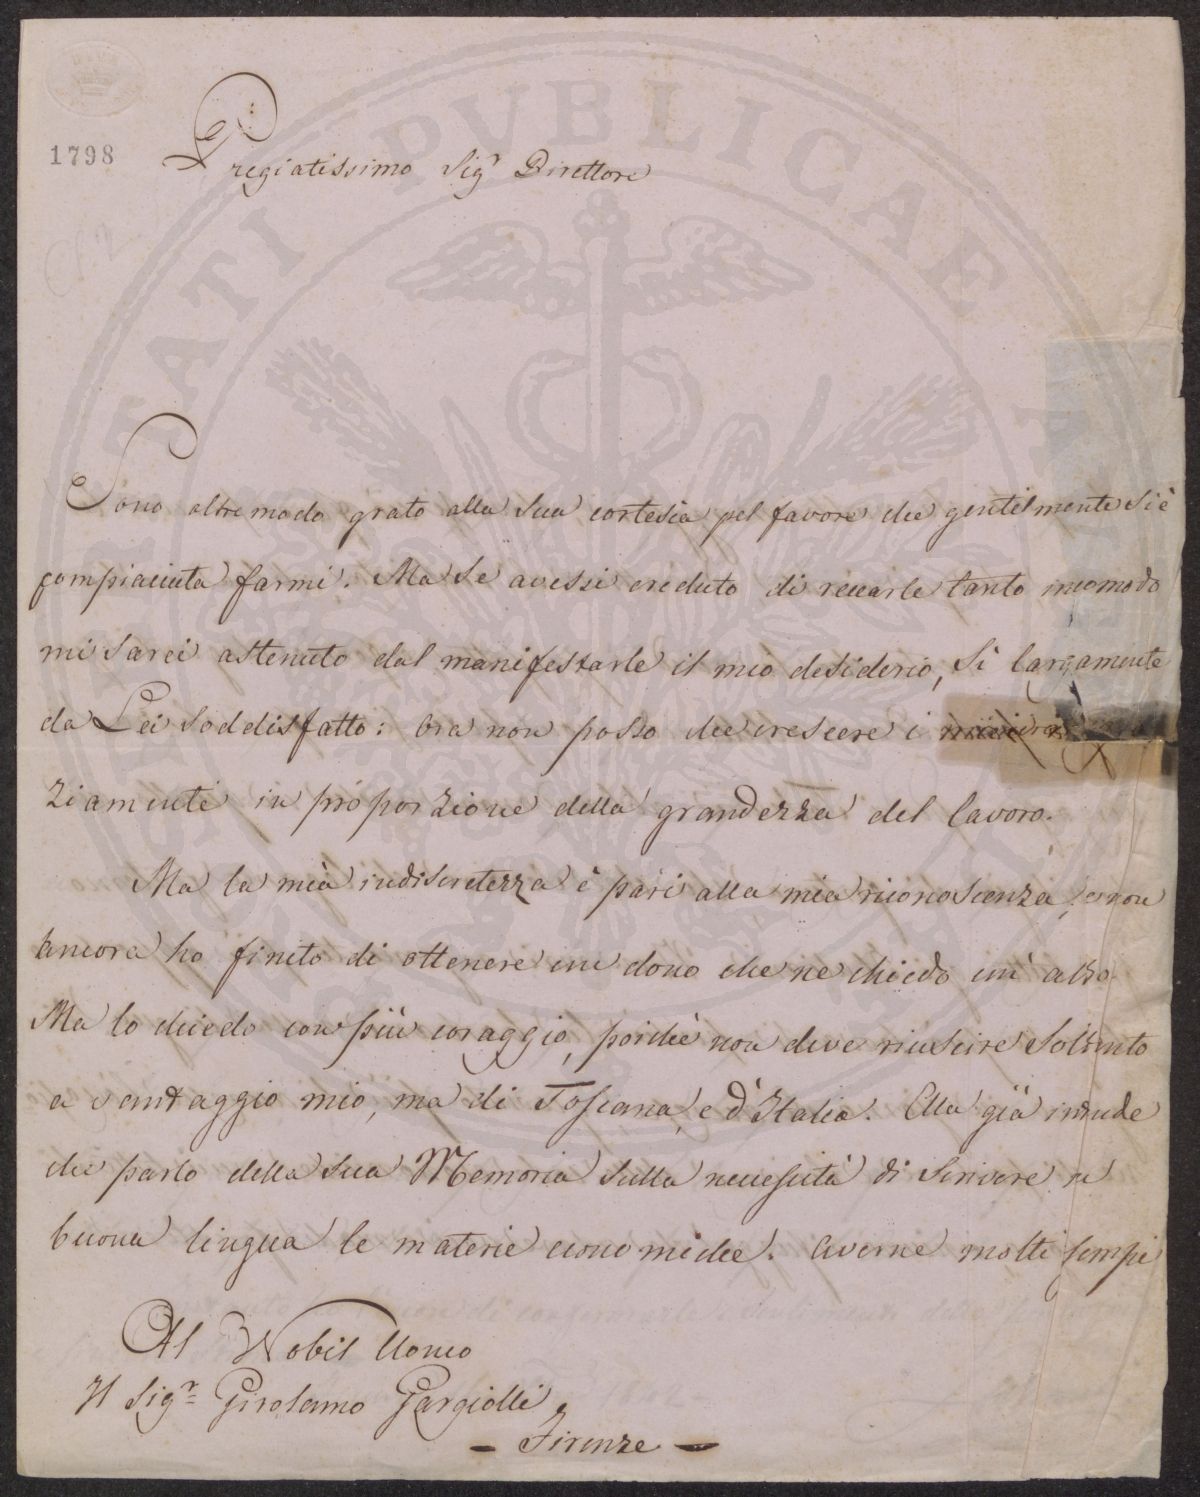 1798
Pregiatissimo Sigr Direttore
Sono oltremodo grato alla sua cortesia pel favore che gentilmente si è
compiaciuta farmi. Ma se avessi creduto di recarle tanto incomodo
mi sarei astenuto dal manifestarle il mio desiderio, sì largamente
da Lei soddisfatto: Ora non posso che crescere i miei ringra
ziamenti in proporzione della grandezza del lavoro.
Ma la mia indiscretezza è pari alla mia riconoscenza, e non
ancora ho finito di ottenere un dono che ne chiedo un altro
Ma lo chiedo con più coraggio, poichè non deve riuscire soltanto
a vantaggio mio, ma di Toscana, e d'Italia. Ella già intende
che parlo della sua Memoria sulla necessità di scrivere in
buona lingua le materie economiche. Averne molti sempi
Al Nobil Uomo
Il Sigr Girolamo Gargiolli
- Firenze -
PUBLICAE